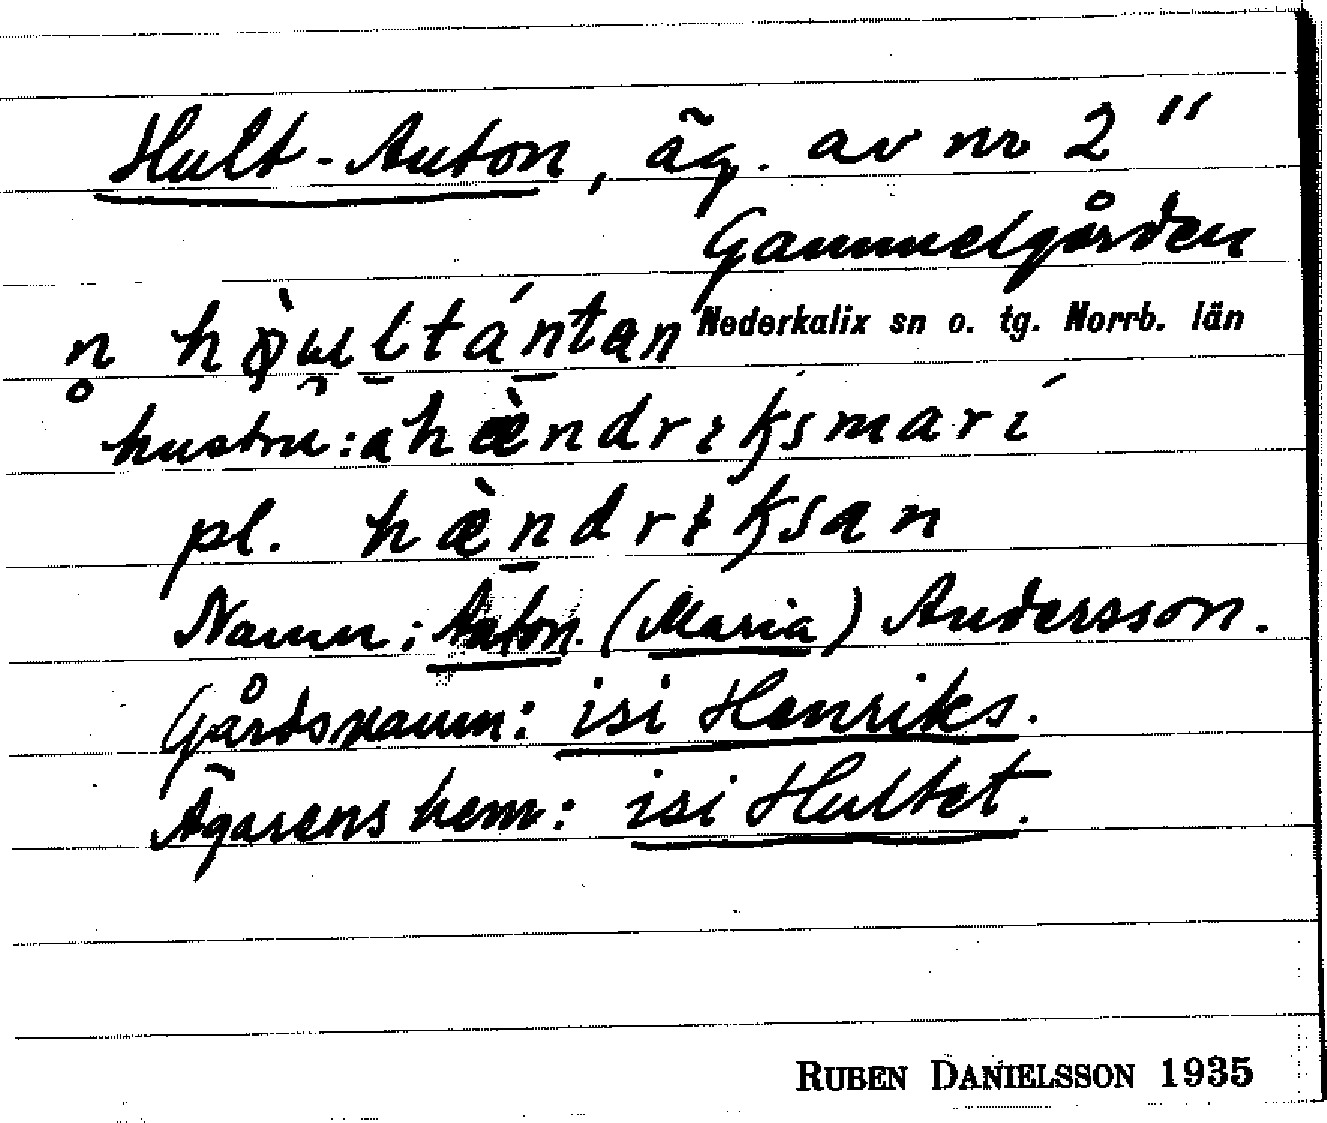 Hult-Anton, äg. av nr 2"
Gammelgården
n̥ hɷ̀u̯ltántan Nederkalix sn o. tg. Norrb. län
hustru: a hæ̀ndrɩksmarí
pl. hæ̀ndrɩksan
Namn: Anton. (Maria) Andersson.
Gårdsnamn: isi Henriks.
Ägarens hem: isi Hultet.
RUBEN DANIELSSON 1935